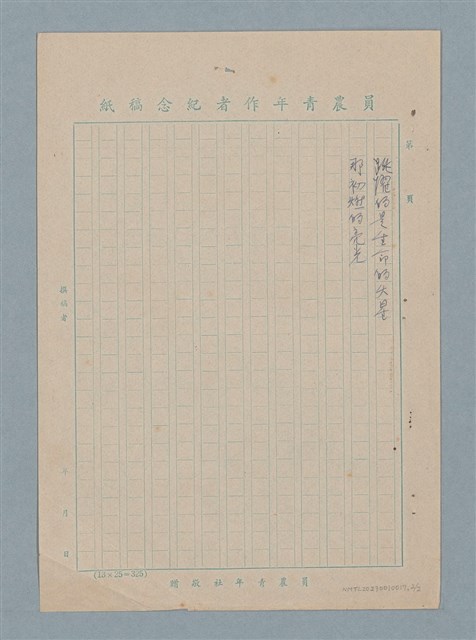 員農青年作者紀念稿紙
第　頁
跳躍的是生命的火星
那初燃的亮光
撰稿者
年　月　日
(13×25=325)
員農青年社敬贈